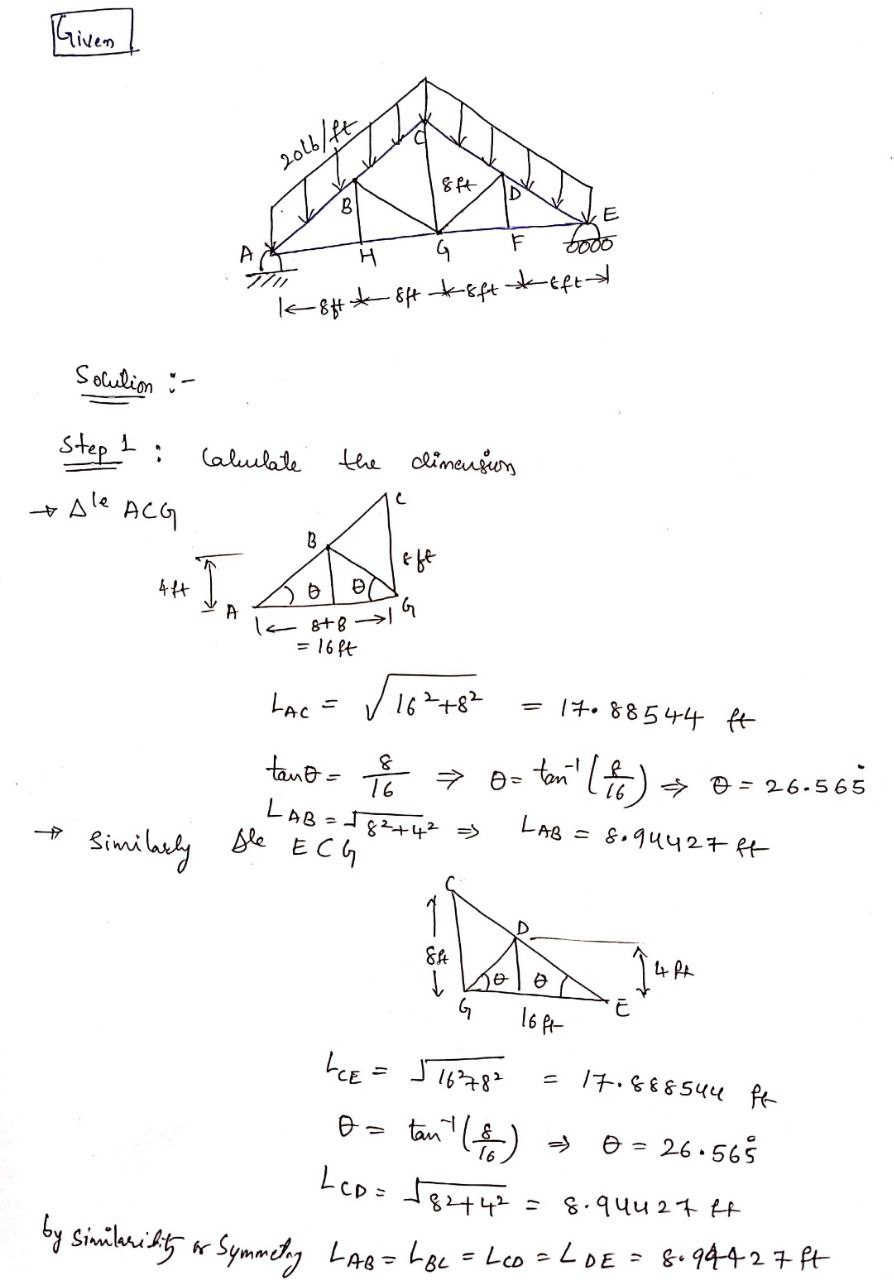 Given
20lb/ft
C
8ft
B
D
E
A
H
G
F
8ft 8ft 8ft 8ft
Solution :-
Step 1 : Calculate the dimension
→ Δle ACG
C
B
8ft
4ft
θ θ
A
G
8+8
= 16ft
LAC = √16²+8² = 17.88544 ft
tanθ = 8/16 ⇒ θ = tan⁻¹(8/16) ⇒ θ = 26.565°
LAB = √8²+4² ⇒ LAB = 8.94427 ft
→ Similarly Δle ECG
C
D
8ft
4ft
θ θ
G
E
16ft
LCE = √16²+8² = 17.888544 ft
θ = tan⁻¹(8/16) ⇒ θ = 26.565°
LCD = √8²+4² = 8.94427 ft
by Similarity or Symmetry LAB = LBC = LCD = LDE = 8.94427 ft